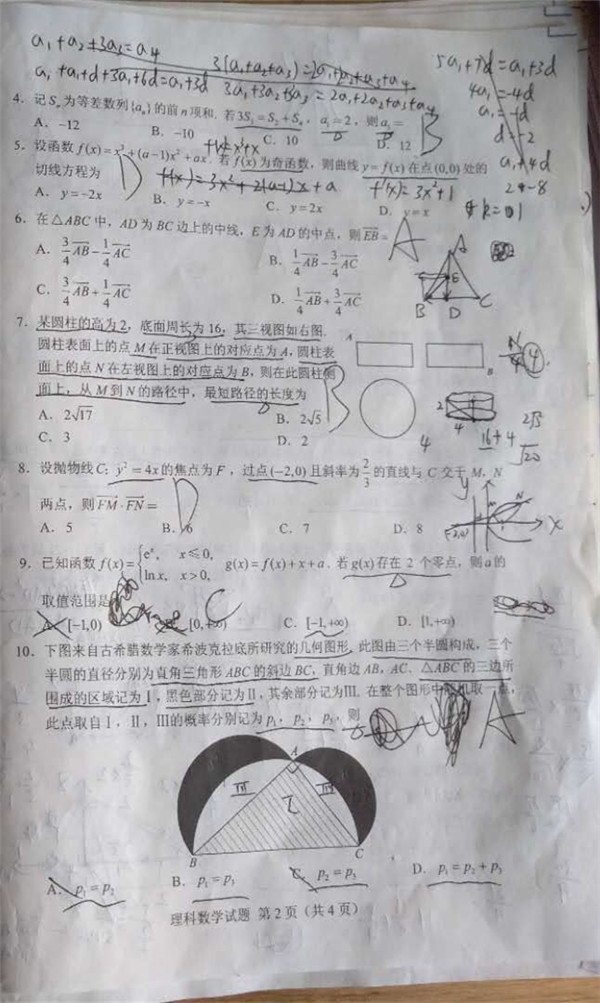 a₁+a₂+3a₃=a₄
3(a₁+a₂+a₃)=2a₁+2a₂+a₃+a₄
5a₁+7d=a₁+3d
a₁+a₁+d+3a₁+6d=a₁+3d
3a₁+3a₂+3a₃=2a₁+2a₂+a₃+a₄
4a₁=-4d
a₁=-d
d=-2
a₁+4d
2+-8
4. 记Sₙ为等差数列{aₙ}的前n项和. 若3S₃=S₂+S₄, a₁=2, 则a₅=
A. -12
B. -10
C. 10
D. 12
B
5. 设函数f(x)=x³+(a-1)x²+ax. 若f(x)为奇函数, 则曲线y=f(x)在点(0,0)处的
f(x)=x³+x
切线方程为
D
f(x)=3x²+2(a-1)x+a
f'(x)=3x²+1
A. y=-2x
B. y=-x
C. y=2x
D. y=x
k=1
6. 在△ABC中, AD为BC边上的中线, E为AD的中点, 则EB=
A
A. 3/4 AB - 1/4 AC
B. 1/4 AB - 3/4 AC
C. 3/4 AB + 1/4 AC
D. 1/4 AB + 3/4 AC
A
E
B D C
7. 某圆柱的高为2, 底面周长为16, 其三视图如右图.
圆柱表面上的点M在正视图上的对应点为A, 圆柱表
面上的点N在左视图上的对应点为B, 则在此圆柱侧
面上, 从M到N的路径中, 最短路径的长度为
B
A. 2√17
B. 2√5
C. 3
D. 2
A
B
4
2
4
4
16+4
2√5
√20
8. 设抛物线C: y²=4x的焦点为F, 过点(-2,0)且斜率为2/3的直线与C交于M, N
两点, 则FM·FN=
D
A. 5
B. 6
C. 7
D. 8
y
N
x
(-2,0)
9. 已知函数f(x)={eˣ, x≤0, ln x, x>0, g(x)=f(x)+x+a. 若g(x)存在2个零点, 则a的
取值范围是
C
A. [-1,0)
[0,+∞)
C. [-1,+∞)
D. [1,+∞)
10. 下图来自古希腊数学家希波克拉底所研究的几何图形. 此图由三个半圆构成, 三个
半圆的直径分别为直角三角形ABC的斜边BC, 直角边AB, AC. △ABC的三边所
围成的区域记为Ⅰ, 黑色部分记为Ⅱ, 其余部分记为Ⅲ. 在整个图形中随机取一点,
此点取自Ⅰ, Ⅱ, Ⅲ的概率分别记为p₁, p₂, p₃, 则
A
A
Ⅲ
Ⅰ
Ⅲ
B
C
A. p₁=p₂
B. p₁=p₃
C. p₂=p₃
D. p₁=p₂+p₃
理科数学试题 第2页（共4页）